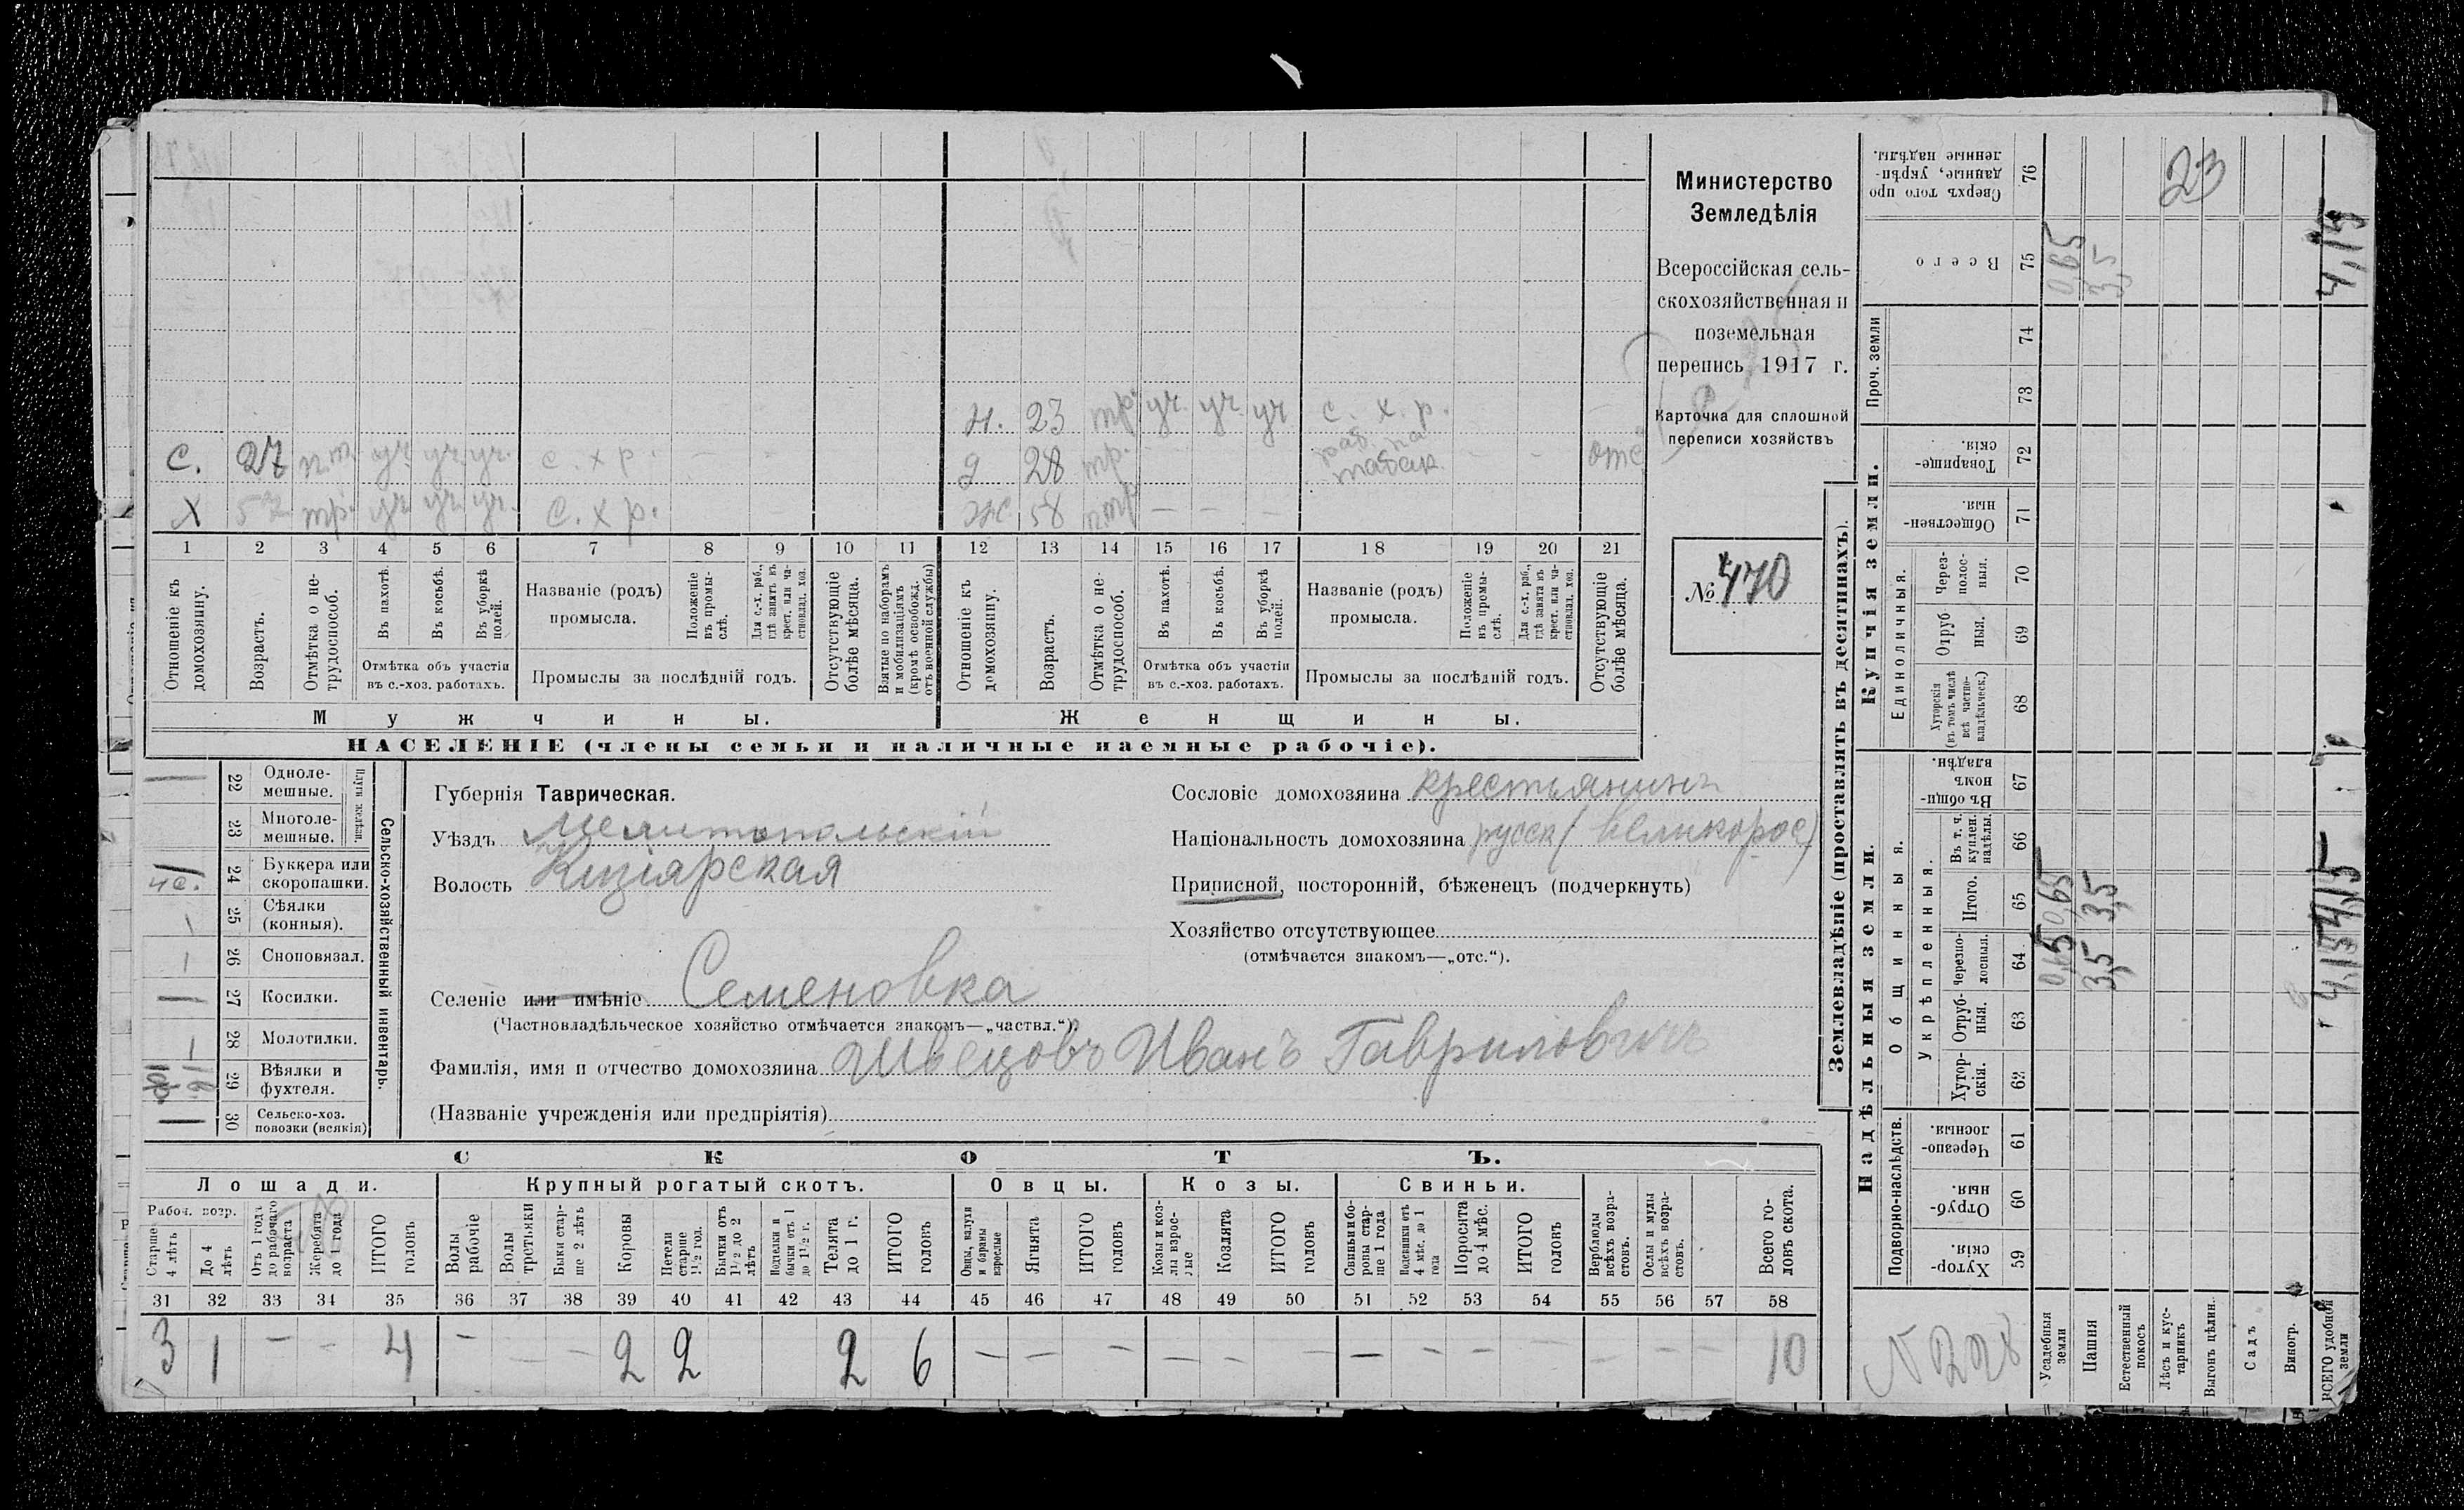 Министерство
Земледѣлія
Всероссійская сель-
скохозяйственная и
поземельная
перепись 1917 г.
Карточка для сплошной
переписи хозяйствъ
№ 470
Н. 23 тр. уч. уч. уч с. х. р.
С. 27 п.т. уч. уч. уч. с. х р. - -
д 28 тр. раб. на табак. - - отс
Х тр. уч уч. уч. с. х р.
ж 58 п.тр - - -
1 2 3 4 5 6 7 8 9 10 11 12 13 14 15 16 17 18 19 20 21
Отношеніе къ домохозяину.
Возрастъ.
Отмѣтка о не-трудоспособ.
Въ пахотѣ.
Въ косьбѣ.
Въ уборкѣ полей.
Отмѣтка объ участіи
въ с.-хоз. работахъ.
Названіе (родъ)
промысла.
Положеніе въ промы-слѣ.
Для с.-х. раб., гдѣ занятъ въ крест. или ча-стновлад. хоз.
Промыслы за послѣдній годъ.
Отсутствующіе болѣе мѣсяца.
Взятые по наборамъ и мобилизаціямъ (кромѣ освобожд. отъ военной службы)
Отношеніе къ домохозяину.
Возрастъ.
Отмѣтка о не-трудоспособ.
Въ пахотѣ.
Въ косьбѣ.
Въ уборкѣ полей.
Отмѣтка объ участіи
въ с.-хоз. работахъ.
Названіе (родъ)
промысла.
Положеніе въ промы-слѣ.
Для с.-х. раб., гдѣ занята въ крест. или ча-стновлад. хоз.
Промыслы за послѣдній годъ.
Отсутствующіе болѣе мѣсяца.
Мужчины.
Женщины.
НАСЕЛЕНІЕ (члены семьи и наличные наемные рабочіе).
22 Одноле-мешные.
23 Многоле-мешные.
24 Буккера или скоропашки.
25 Сѣялки (конныя).
26 Сноповязал.
27 Косилки.
28 Молотилки.
29 Вѣялки и фухтеля.
30 Сельско-хоз. повозки (всякія)
Сельско-хозяйственный инвентарь.
Губернія Таврическая.
Уѣздъ Мелитопольскій
Волость Кизіярская
Сословіе домохозяина крестьянинъ
Національность домохозяина русск (великорос)
Приписной, посторонній, бѣженецъ (подчеркнуть)
Хозяйство отсутствующее
(отмѣчается знакомъ—„отс.“).
Селеніе или имѣніе Семеновка
(Частновладѣльческое хозяйство отмѣчается знакомъ—„частвл.“).
Фамилія, имя и отчество домохозяина Швецовъ Иванъ Гавриловичъ
(Названіе учрежденія или предпріятія)
СКОТЪ.
Лошади.
Крупный рогатый скотъ.
Овцы.
Козы.
Свиньи.
Рабоч. возр.
Старше 4 лѣтъ
До 4 лѣтъ
Отъ 1 года до рабочаго возраста
Жеребята до 1 года
ИТОГО головъ
Волы рабочіе
Волы третьяки
Быки стар-ше 2 лѣтъ
Коровы
Нетели старше 1½ год.
Бычки отъ 1½ до 2 лѣтъ
Подтелки и бычки отъ 1 до 1½ г.
Телята до 1 г.
ИТОГО головъ
Овцы, валухи и бараны взрослые
Ягнята
ИТОГО головъ
Козы и коз-лы взрос-лые
Козлята
ИТОГО головъ
Свиньи и бо-ровы стар-ше 1 года
Подсвинки отъ 4 мѣс. до 1 года
Поросята до 4 мѣс.
ИТОГО головъ
Верблюды всѣхъ возра-стовъ.
Ослы и мулы всѣхъ возра-стовъ.
Всего го-ловъ скота.
31 32 33 34 35 36 37 38 39 40 41 42 43 44 45 46 47 48 49 50 51 52 53 54 55 56 57 58
3 1 - - 4 - - - 2 2 2 6 - - - - - - - - - - - - 10
Землевладѣніе (проставлять въ десятинахъ).
Надѣльныя земли.
Купчія земли.
Проч. земли
Подворно-наслѣдств.
Общинныя.
Укрѣпленныя.
Единоличныя.
59 Хутор-скія.
60 Отруб-ныя.
61 Черезпо-лосныя.
62 Хутор-скія.
63 Отруб-ныя.
64 Черезпо-лосныя.
65 Итого.
66 Въ т. ч. куплен. надѣлы.
67 Въ общи-номъ владѣн.
68 Хуторскія (въ томъ числѣ всѣ частно-владѣльческ.)
69 Отруб ныя.
70 Через-полос-ныя.
71 Обществен-ныя
72 Товарище-скія.
73
74
75 Всего
76 Сверхъ того про данные, укрѣп-ленные надѣлы.
Усадебныя земли 0,65 0,65 0,65
Пашня 3,5 3,5 3,5
Естественный покосъ
Лѣсъ и кус-тарникъ
Выгонъ цѣлин.
Садъ
Виногр.
ВСЕГО удобной земли 4,15 4,15 4,15
23
N 228